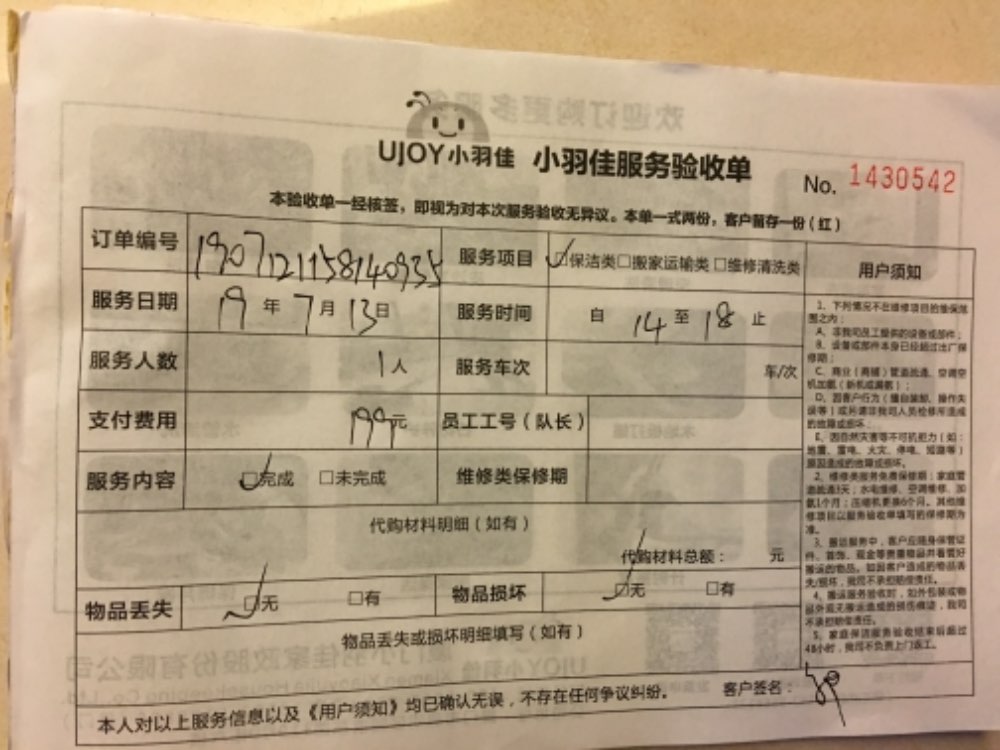 UJOY小羽佳 小羽佳服务验收单
No. 1430542
本验收单一经核签，即视为对本次服务验收无异议。本单一式两份，客户留存一份（红）
订单编号 190712115814093５ 服务项目 ☑保洁类□搬家运输类□维修清洗类 用户须知
服务日期 19年7月13日 服务时间 自 14 至 18 止
服务人数 1人 服务车次 车/次
支付费用 199元 员工工号（队长）
服务内容 ☑完成 □未完成 维修类保修期
代购材料明细（如有）
代购材料总额： 元
物品丢失 ☑无 □有 物品损坏 ☑无 □有
物品丢失或损坏明细填写（如有）
本人对以上服务信息以及《用户须知》均已确认无误，不存在任何争议纠纷。 客户签名：
1、下列情况不在维修项目的维保范围之内：
A、非我司员工提供的设备或部件；
B、设备或部件本身已经超过出厂保修期；
C、商业（商铺）管道疏通、空调空机加氨（新机或漏氨）；
D、因客户行为（擅自装卸、操作失误等）或另请非我司人员检修所造成的故障或损坏；
E、因自然灾害等不可机拒力（如：地震、雷电、火灾、停电、短路等）原因造成的故障或损坏。
2、维修类服务免费保修期：家庭管道疏通3天；水电维修、空调维修、加氨1个月；压缩机更换6个月。其他维修项目以服务验收单填写的保修期为准。
3、搬运服务中，客户应随身保管证件、首饰、现金等贵重物品并看管好搬运的物品。如因客户造成的物品丢失/损坏，我司不承担赔偿责任。
4、搬运服务验收时，如外包装或物品外观无搬运造成的损伤痕迹，我司不承担赔偿责任。
5、家庭保洁服务验收结束后超过48小时，我司不负责上门返工。